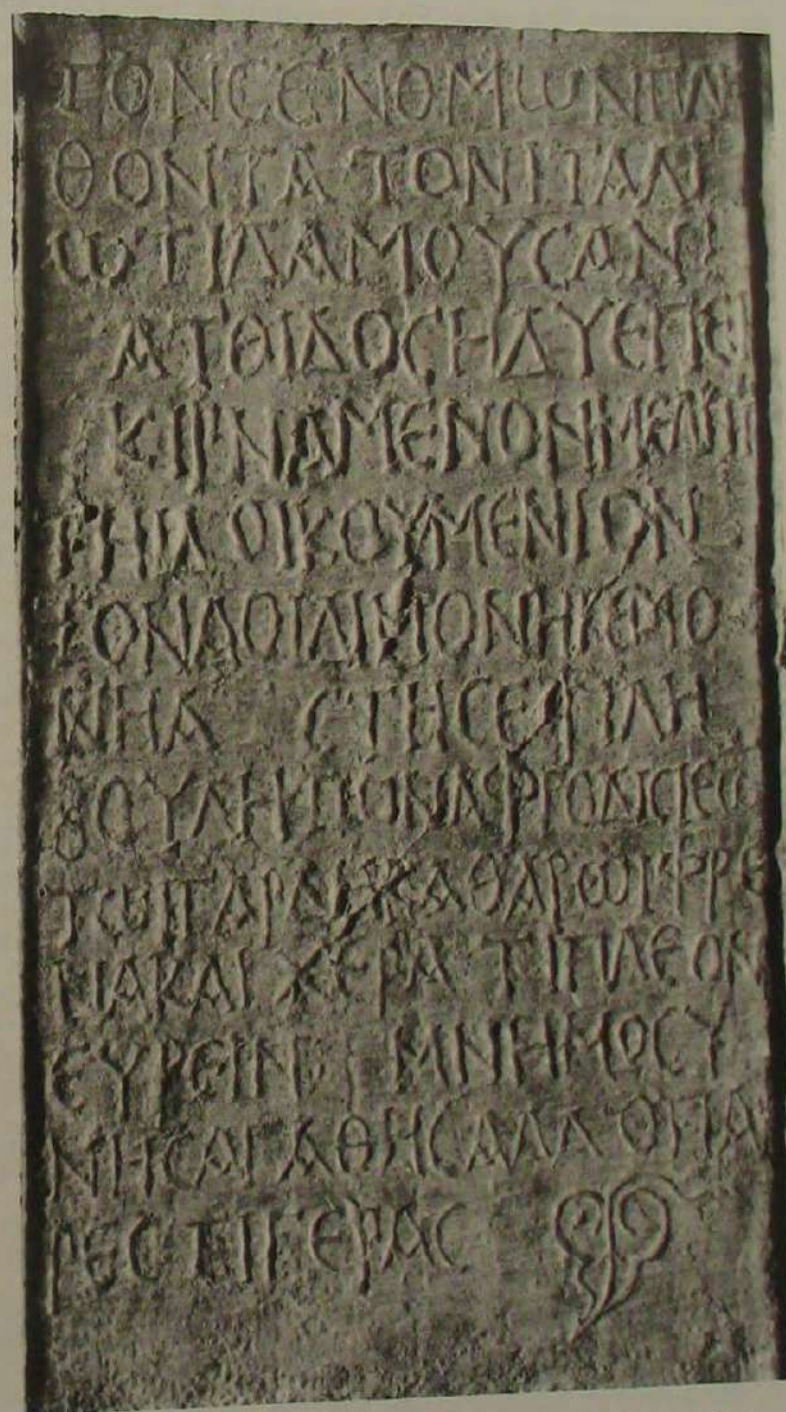 ΤΟΝϹΕΝΟΜΩΝΠΛΗ
ΘΟΝΤΑΤΟΝΙΤΑΛΙ
ΩΤΙΔΑΜΟΥϹΑΝ
ΑΤΘΙΔΟϹΗΔΥΕΠΕΙ
ΚΙΡΝΑΜΕΝΟΝΜΕΛΙΤΙ
ΤΗΙΔΟΙΚΟΥΜΕΝΙΟΝ
ΤΟΝΑΟΙΔΙΜΟΝΗΓΕΜΟ
ΝΗΑ ϹΤΗϹΕΦΙΛΗ
ΒΟΥΛΗΤΩΝΑΦΡΟΔΙϹΙΕΩ
ΤΩΙΓΑΡΔΗΚΑΘΑΡΩΙΦΡΕ
ΝΑΚΑΙΧΕΡΑ ΤΙΠΛΕΟΝ
ΕΥΡΕΙΝ ΜΝΗΜΟϹΥ
ΝΗϹΑΓΑΘΗϹΑΛΛΟΠΑ
ΡΕϹΤΙΓΕΡΑϹ